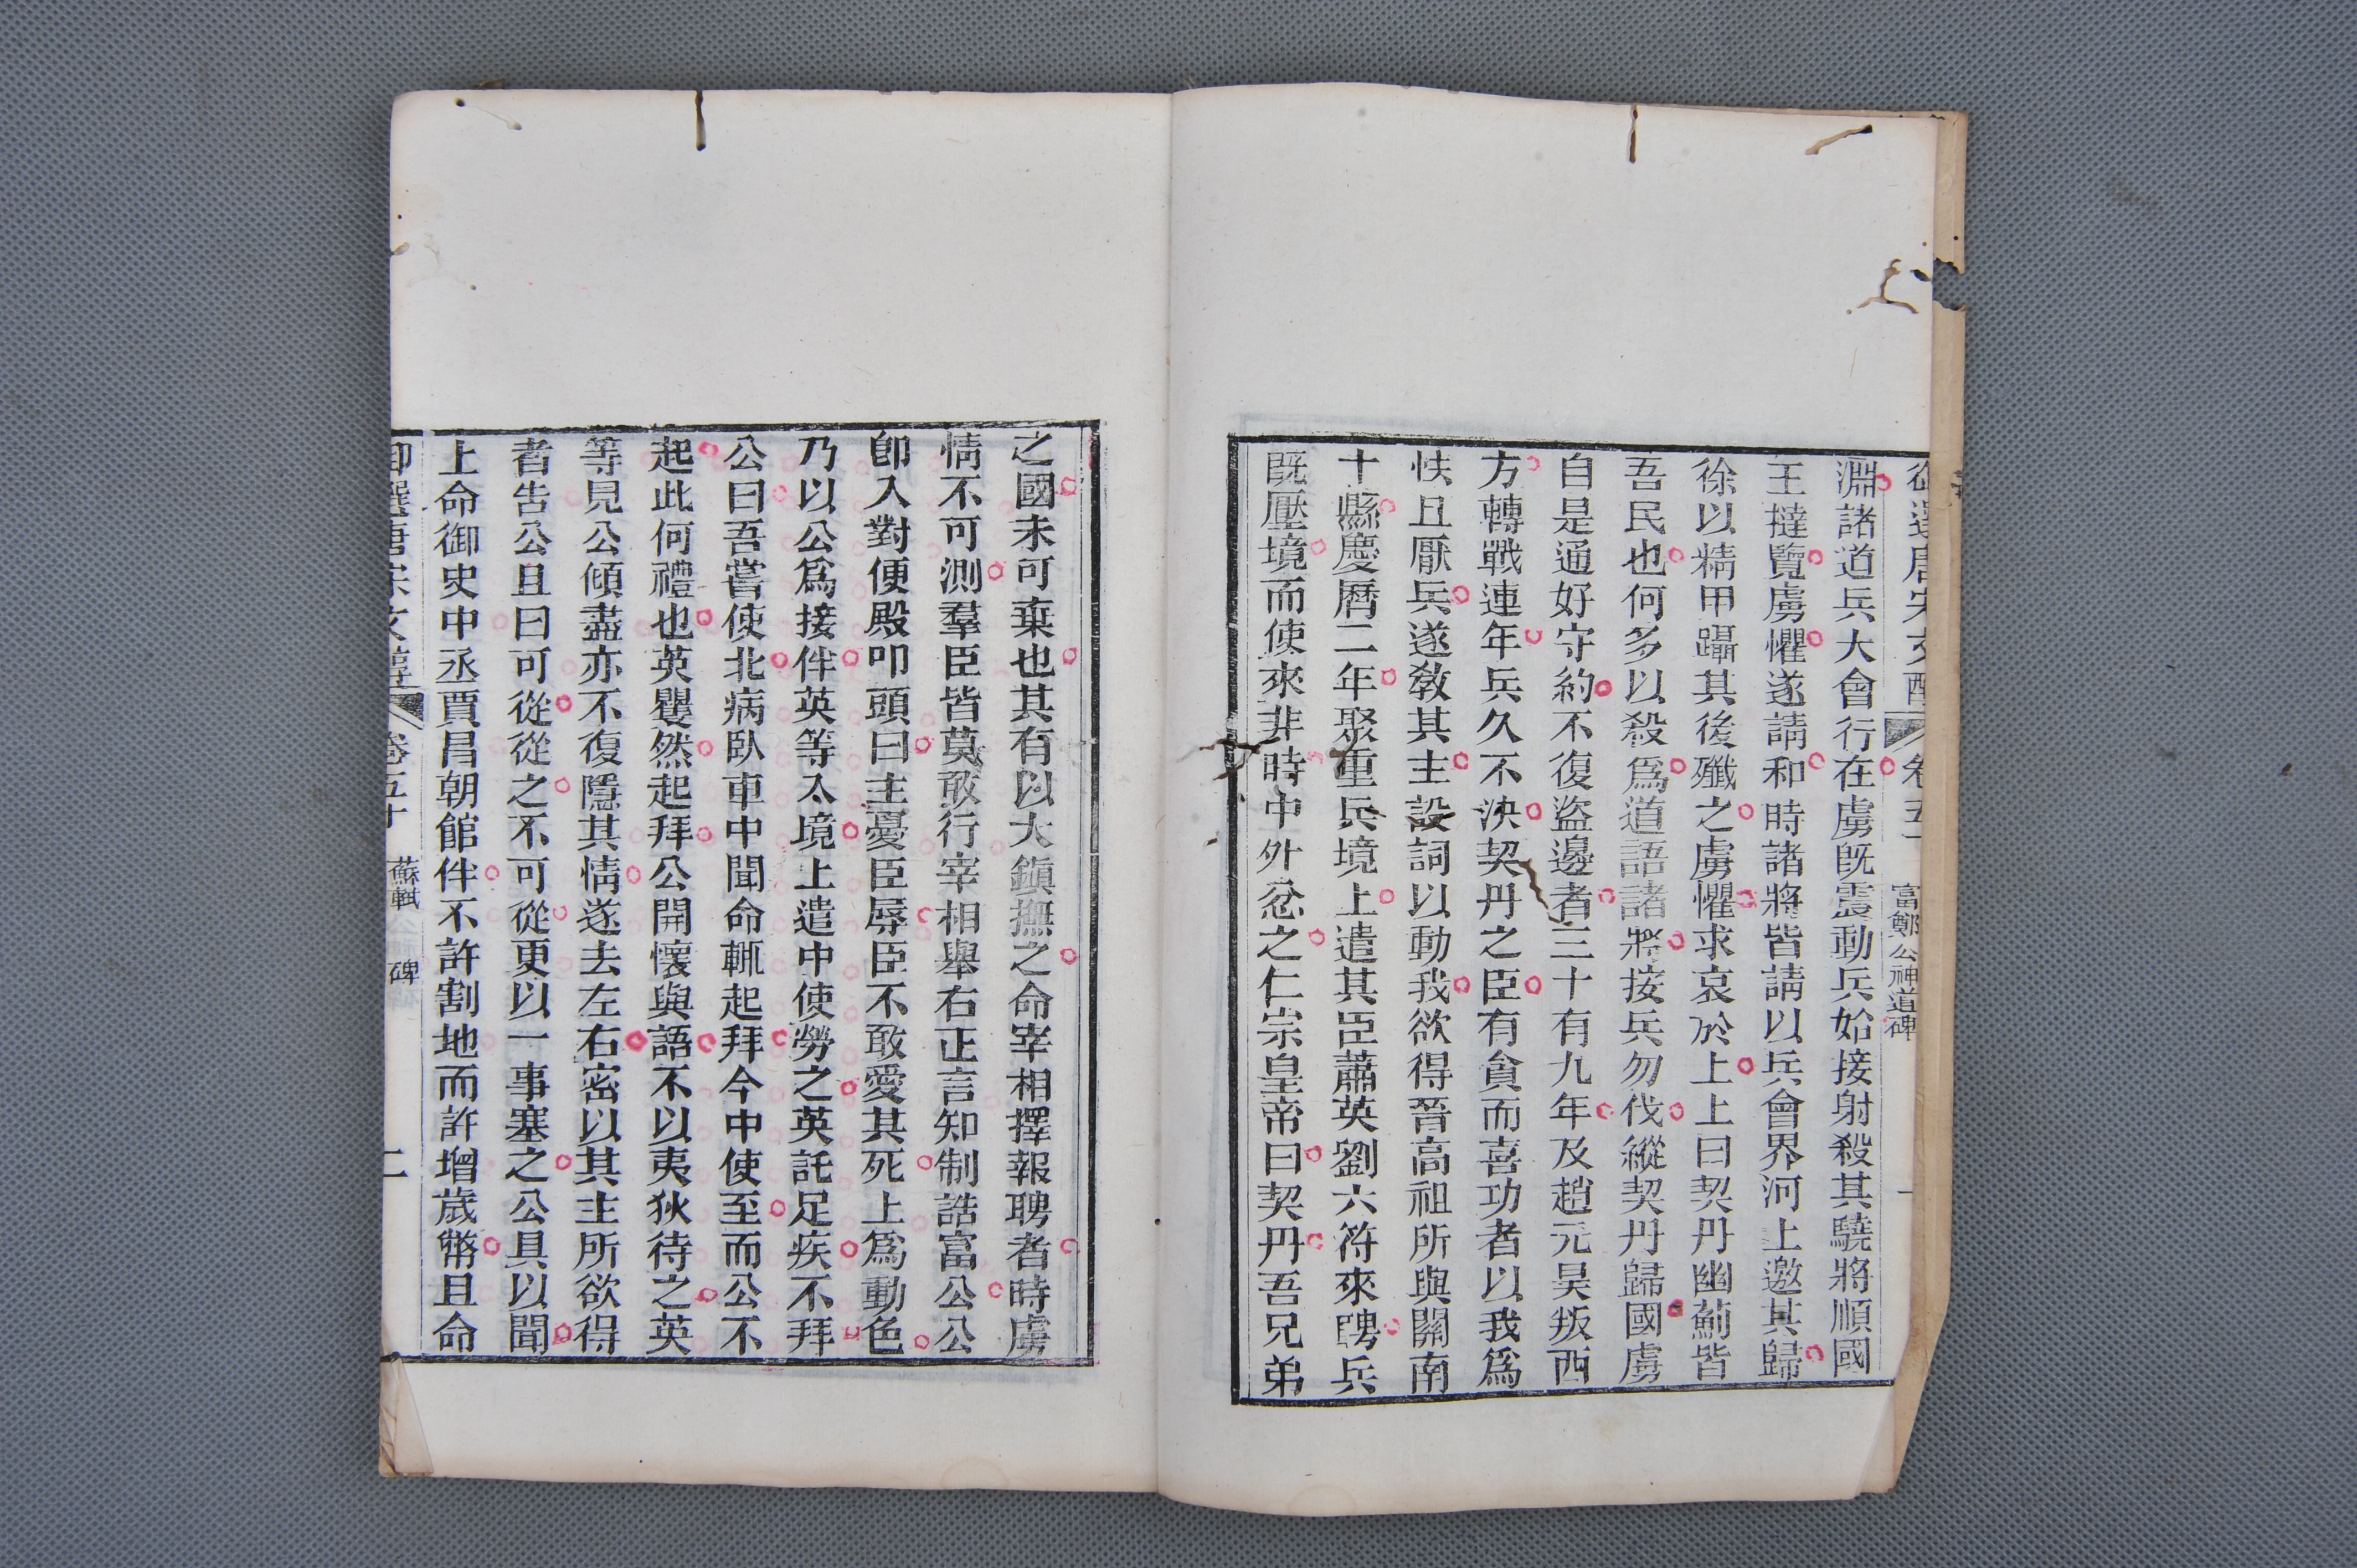 淵諸道兵大會行在虜旣震動兵始接射殺其驍將順國
王撻覽虜懼遂請和時諸將皆請以兵會界河上邀其歸
徐以精甲躡其後殲之虜懼求哀於上上曰契丹幽薊皆
吾民也何多以殺爲道語諸將按兵勿伐縱契丹歸國虜
自是通好守約不復盜邊者三十有九年及趙元昊叛西
方轉戰連年兵久不決契丹之臣有貪而喜功者以我爲
怯且厭兵遂敎其主設詞以動我欲得晉高祖所與關南
十縣慶曆二年聚重兵境上遣其臣蕭英劉六符來聘兵
旣壓境而使來非時中外忿之仁宗皇帝曰契丹吾兄弟
富鄭公神道碑
之國未可棄也其有以大鎭撫之命宰相擇報聘者時虜
情不可測羣臣皆莫敢行宰相舉右正言知制誥富公公
卽入對便殿叩頭曰主憂臣辱臣不敢愛其死上爲動色
乃以公爲接伴英等入境上遣中使勞之英託足疾不拜
公曰吾嘗使北病臥車中聞命輒起拜今中使至而公不
起此何禮也英矍然起拜公開懷與語不以夷狄待之英
等見公傾盡亦不復隱其情遂去左右密以其主所欲得
者告公且曰可從從之不可從更以一事塞之公具以聞
上命御史中丞賈昌朝館伴不許割地而許增歲幣且命
御選唐宋文醇 卷五十 蘇軾 碑 二